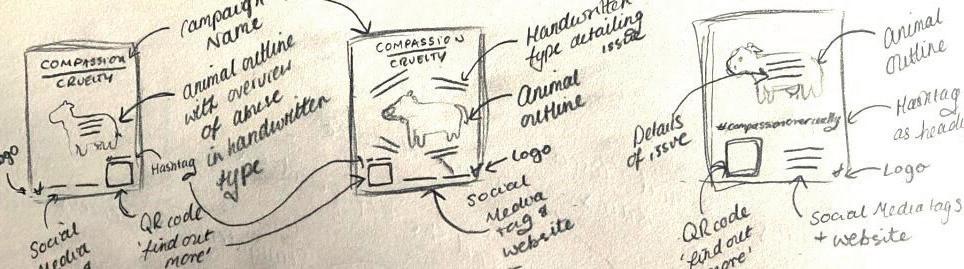 campaign
Name
COMPASSION
CRUELTY
animal outline
with overview
of abuse
in handwritten
type
Hashtag
Social
Media
QR code
'find out
more'
COMPASSION
CRUELTY
Handwritten
type detailing
issue
Animal
outline
Logo
Social
Media
tag &
website
Animal
outline
Details
of issue
#compassionovercruelty
Hashtag
as head
Logo
QR code
'find out
more'
Social Media tags
+ website